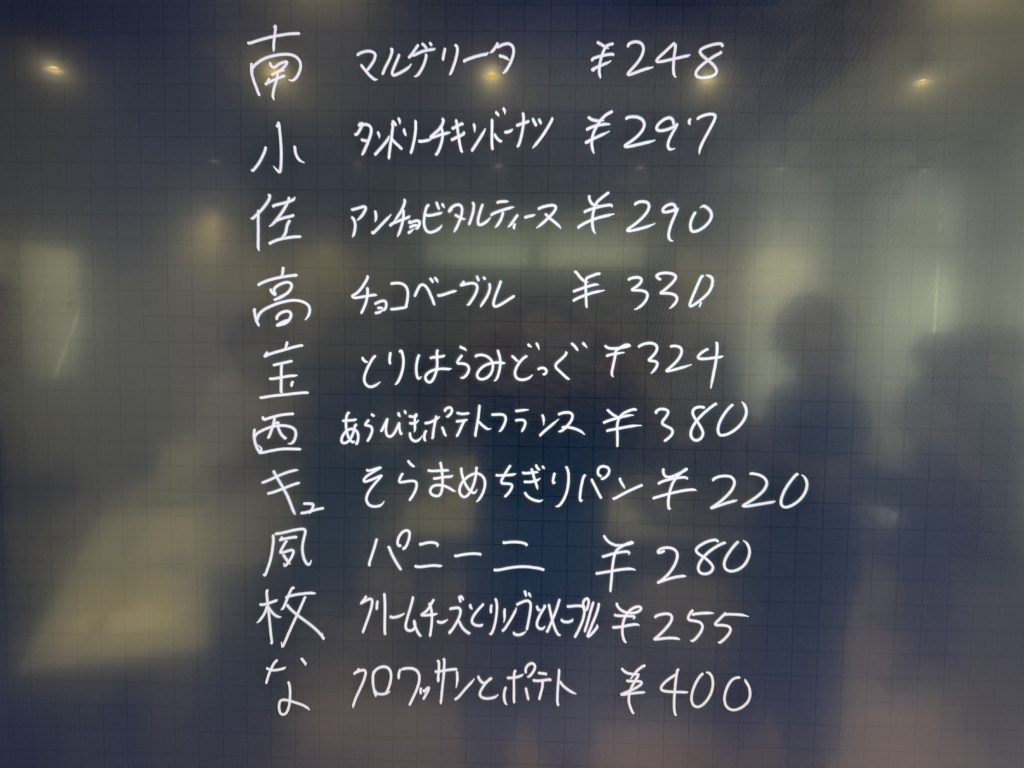 南 マルゲリータ ¥248
小 タンドリーチキンドーナツ ¥297
佐 アンチョビタルティーヌ ¥290
高 チョコベーグル ¥330
宝 とりはらみどっぐ ¥324
西 あらびきポテトフランス ¥380
キュ そらまめちぎりパン ¥220
風 パニーニ ¥280
枚 クリームチーズとリンゴとメープル ¥255
な クロワッサンとポテト ¥400